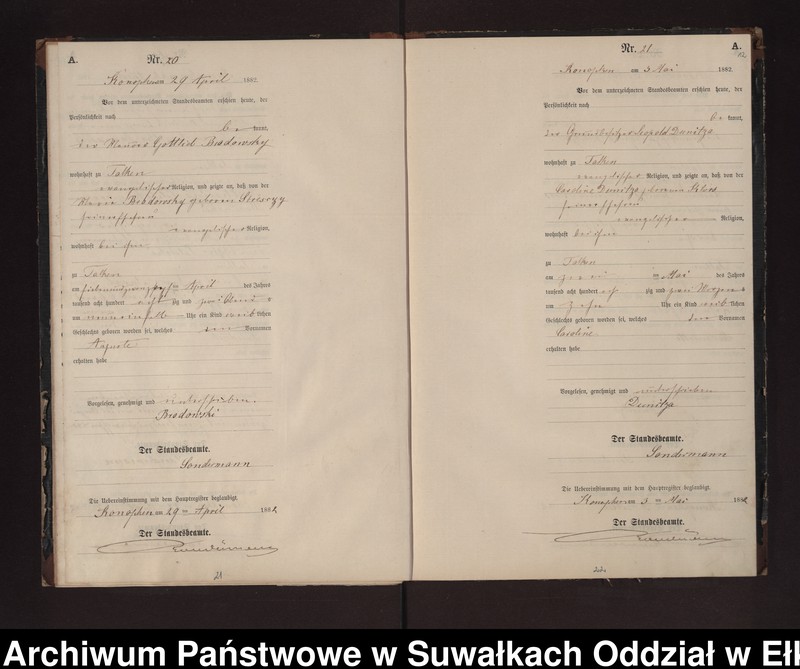 A.
Nr. 20
Konopken am 29 April 1882.
Vor dem unterzeichneten Standesbeamten erschien heute, der
Persönlichkeit nach
be kannt,
Gottlieb Brodowsky
wohnhaft zu Talken
evangelischer Religion, und zeigte an, daß von der
Brodowsky geborenen
evangelischer Religion,
wohnhaft bei ihm
zu Talken
am ten April des Jahres
tausend acht hundert acht zig und zwei
um Uhr ein Kind weib lichen
Geschlechts geboren worden sei, welches den Vornamen
Auguste
erhalten habe
Vorgelesen, genehmigt und unterschrieben.
Brodowski
Der Standesbeamte.
Sondermann
Die Uebereinstimmung mit dem Hauptregister beglaubigt.
Konopken am 29 ten April 1882
Der Standesbeamte.
Sondermann
21
Nr. 21
A.
Konopken am 3 Mai 1882.
Vor dem unterzeichneten Standesbeamten erschien heute, der
Persönlichkeit nach
be kannt,
der Grundbesitzer Leopold Dunitza
wohnhaft zu Talken
evangelischer Religion, und zeigte an, daß von der
Caroline Dunitza geborenen
seiner Ehefrau
evangelischer Religion,
wohnhaft bei ihm
zu Talken
am zwei ten Mai des Jahres
tausend acht hundert acht zig und zwei
um Zehn Uhr ein Kind weib lichen
Geschlechts geboren worden sei, welches den Vornamen
Caroline
erhalten habe
Vorgelesen, genehmigt und unterschrieben
Dunitza
Der Standesbeamte.
Sondermann
Die Uebereinstimmung mit dem Hauptregister beglaubigt.
Konopken am 3 ten Mai 1882
Der Standesbeamte.
Sondermann
22.
Archiwum Państwowe w Suwałkach Oddział w Eł